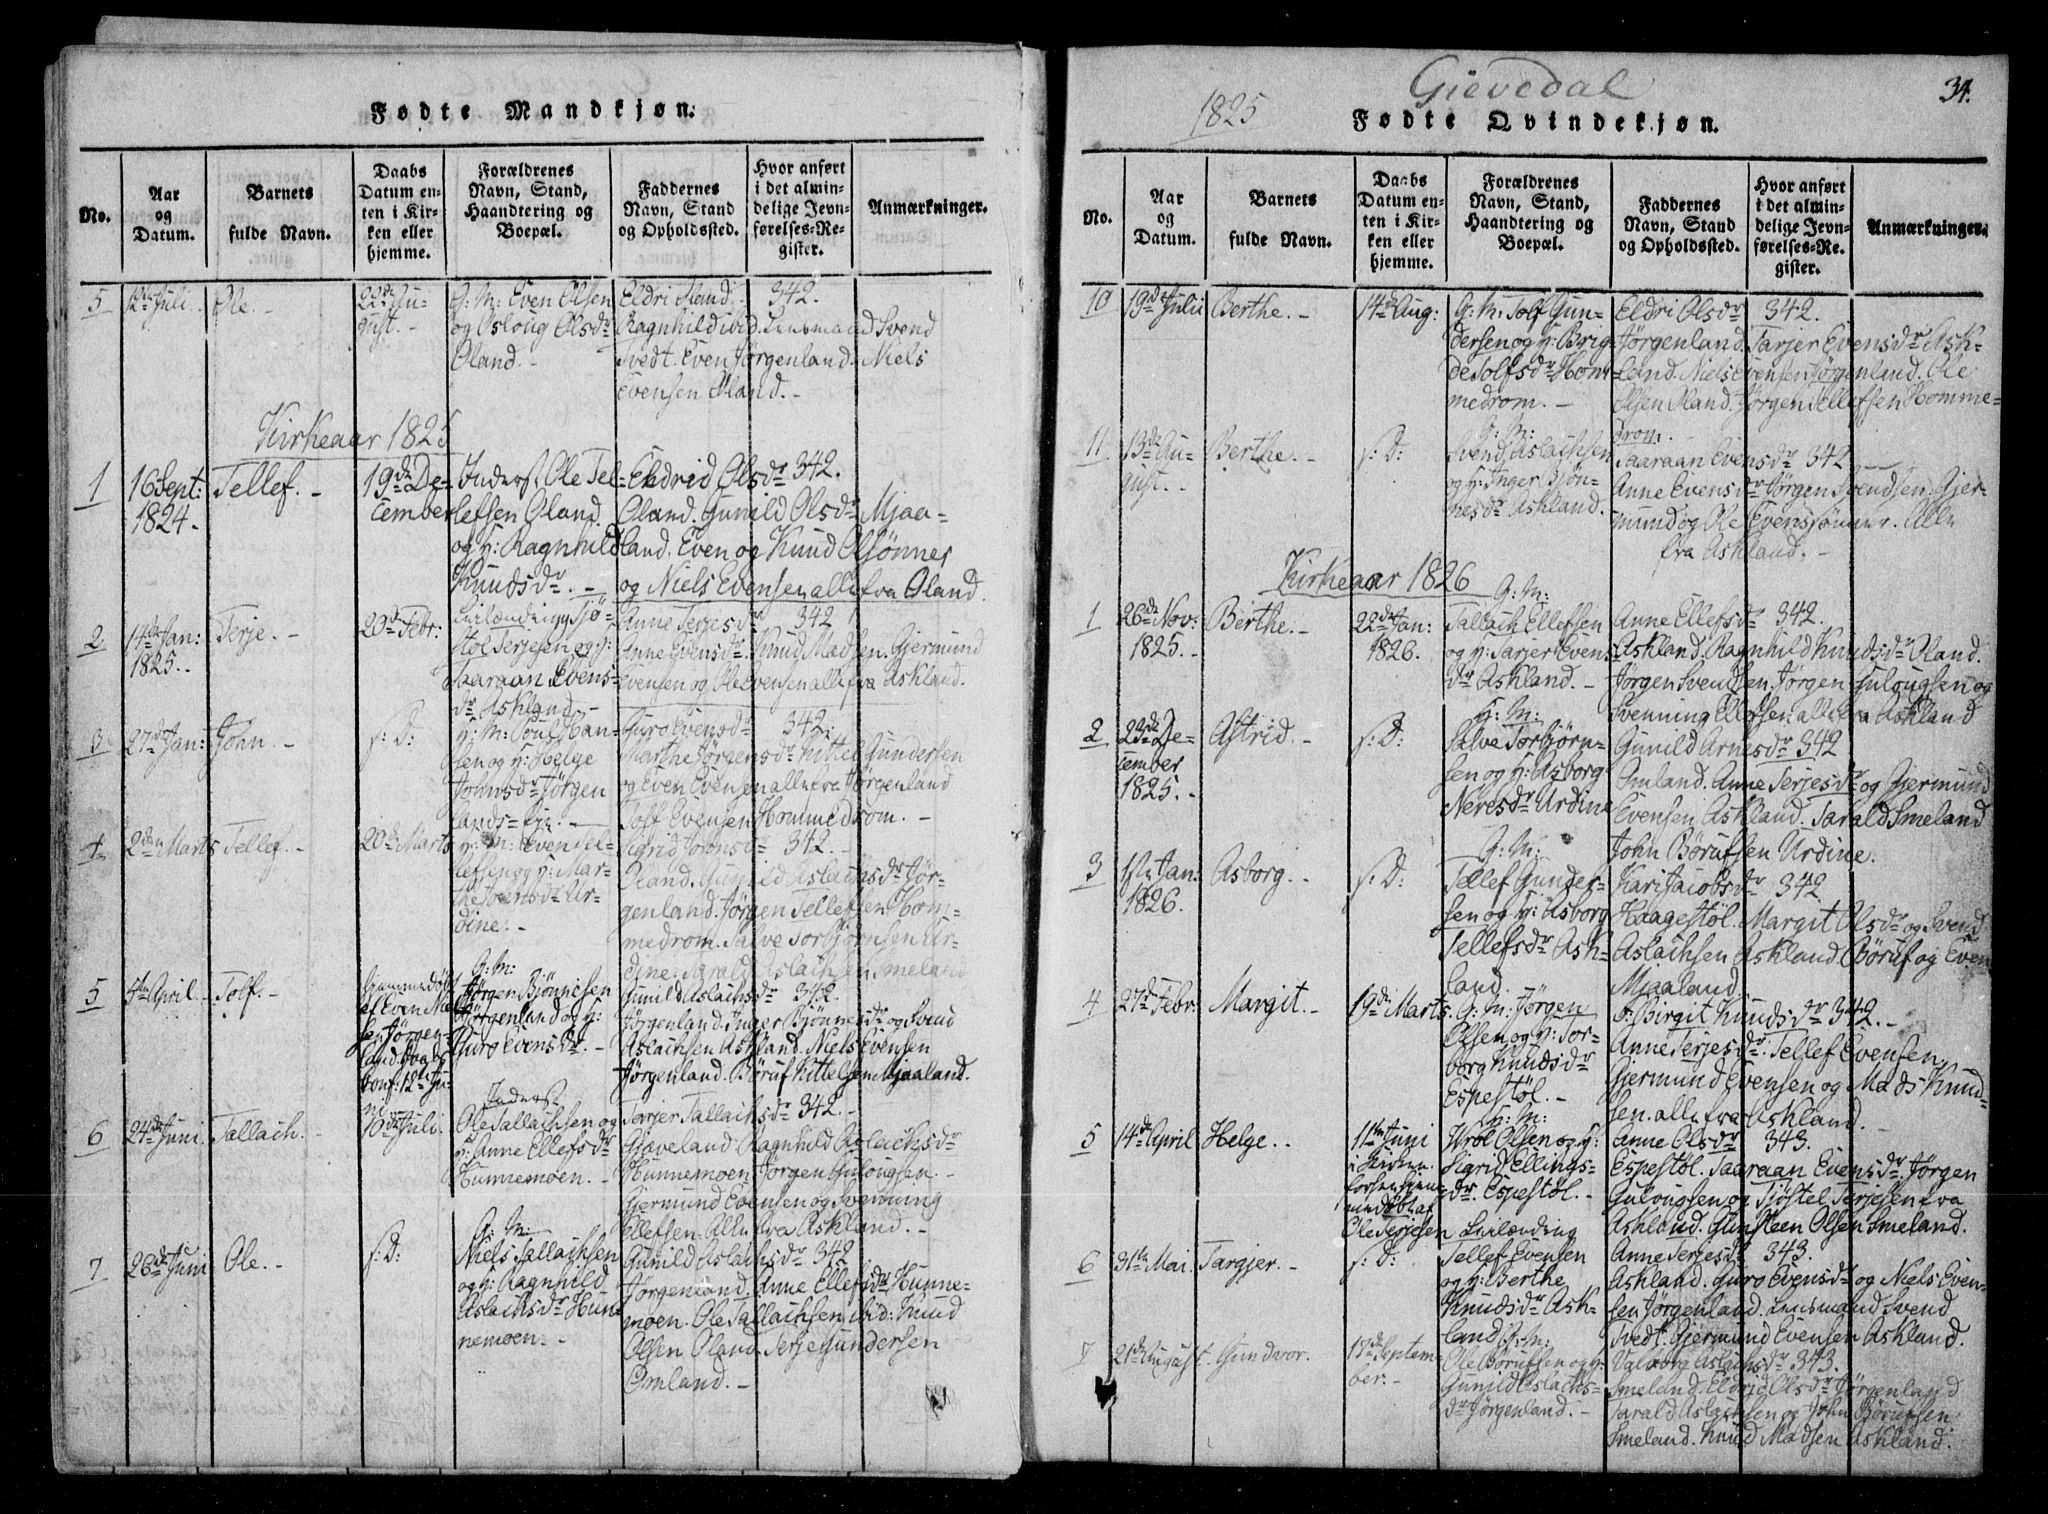 Fødte Mandkjøn.
No.
Aar
og
Datum.
Barnets
fulde Navn.
Daabs
Datum en-
ten i Kir-
ken eller
hjemme.
Forældrenes
Navn, Stand,
Haandtering og
Boepæl.
Faddernes
Navn, Stand
og Opholdssted.
Hvor anført
i det almin-
delige Jevn-
førelses-Re-
gister.
Anmærkninger.
5 12te Juli. Ole.- 22de Au-
gust.-
G: M: Even Olsen
og Oslaug Olsdr
Øland.-
Eldri Øland. 342.
Ragnhild ibid. Lensmand Svend
Tvedt. Even Jørgenland. Niels
Evensen Øland.-
Kirkeaar 1825
1 16 Sept:
1824.-
Tellef.-
19de De-
cember
Inderst Ole Tel-
lefsen Øland.
og H: Ragnhild
Knudsdr.-
Eldrid Olsdr 342.
Øland. Gunild Olsdr Mjaa-
land. Even og Knud Olsønner
og Niels Evensen alle fra Øland.
2 14de Jan:
1825.-
Terje.-
20de Febr:
Leilænding Tjø-
stol Terjesen og H:
Saaraan Evens-
dr Askland.-
Anne Terjesdr 342
Anne Evensdr. Knud Madsen. Gjermund
Evensen og Ole Evensen alle fra Askland.
3 27de Jan: John.- s: D:
G: M: Poul Han-
sen og H: Helge
Johnsdr Jørgen
lands-
Guro Evensdr 342.
Marthe Jørgensdr Kittel Gundersen
og Even Evensen alle fra Jørgenland
Tolf Evensen Hommedrom.-
4 2den Marts Tellef.- 20de Marts
G: M: Even Tel-
lefsen og H: Mar-
the Joensdr Ur-
dine.-
Sigrid Joensdr 342.-
Øland. Gunild Aslachsdr Jør-
genland. Jørgen Tellefsen Hom-
medrom. Salve Torbjørnsen Ur-
dine. Tarald Aslachsen Smeland
5 4de April.- Tolf.-
Hjemmedøbt
af Even Niel-
sen Jørgen-
land. Daabs
conf: 12te Ju-
ni
G: M:
Jørgen Bjønnesen
Jørgenland og H:
Guro Evensdr.-
Gunild Aslachsdr 342.
Jørgenland. Inger Bjønnesdr og Svend
Aslachsen Askland. Niels Evensen
Jørgenland. Børuf Kittelsen Mjaaland.
6 24de Juni Tallach.- 10de Juli.
Inderst
Ole Tallachsen og
H: Anne Ellefsdr
Hunnemoen.-
Tarjer Tallachsdr 342.-
Gjøveland Ragnhild Aslachsdr
Hunnemoen. Jørgen Gulougsen.-
Gjermund Evensen og Svenning
Ellefsen. Alle fra Askland.-
7 26de Juni Ole.- s: D:
G: M:
Niels Tallachsen
og H: Ragnhild
Aslachsdr Hun-
nemoen.-
Gunild Aslachsdr 342
Jørgenland. Anne Ellefsdr Hunne-
moen. Ole Tallachsen ibid: Knud
Olsen Øland. Terje Gundersen
Omland.-
Gievedal
34.
1825
Fødte Qvindekjøn.
No.
Aar
og
Datum.
Barnets
fulde Navn.
Daabs
Datum en-
ten i Kir-
ken eller
hjemme.
Forældrenes
Navn, Stand,
Haandtering og
Boepæl.
Faddernes
Navn, Stand
og Opholdssted.
Hvor anført
i det almin-
delige Jevn-
førelses-Re-
gister.
Anmærkninger.
10 19de Julii Berthe.- 14de Aug:
G: M: Tolf Gun-
dersen og H: Brig-
de Tolfsdr Hom-
medrom.-
Eldri Olsdr 342.
Jørgenland. Tarjer Evensdr Ask-
land. Niels Evensen Jørgenland. Ole
Olsen Øland. Jørgen Tellefsen Homme-
drom.
11 13de Au-
gust.-
Berthe.- s: D:
G: M:
Svend Aslachsen
og H: Inger Bjøn-
nesdr Askland.
Saaraan Evensdr 342
Anne Evensdr Jørgen Svendsen. Gjer-
mund og Ole Evenssønner. Alle
fra Askland.-
Kirkeaar 1826
1 26de Nov:
1825.-
Berthe.-
22de Jan:
1826.
G: M:
Tallach Ellefsen
og H: Tarjer Evens
dr Askland.-
Anne Ellefsdr 342.
Askland. Ragnhild Knudsdr Øland.
Jørgen Svendsen. Jørgen Gulougsen og
Svenning Ellefsen alle fra Askland
2 23de De-
cember
1825.-
Astrid.- s: D:
G: M:
Salve Torbjørn-
sen og H: Asborg
Neresdr Urdine
Gunild Arnesdr 342
Omland. Anne Terjesdr og Gjermund
Evensen Askland. Tarald Smeland
John Børufsen Urdine.
3 1ste Jan:
1826.
Asborg.- s: D:
G: M:
Tellef Gunder-
sen og H: Asborg
Tellefsdr Ask-
land.
Kari Jacobsdr 342
Haagestøl. Margit Olsdr og Svend
Aslachsen Askland. Børuf og Even
Mjaaland.
4 27de Febr: Margit.- 19de Marts.
G: M: Jørgen
Olsen og H: Tor-
borg Knudsdr
Espestøl.-
Birgit Knudsdr 342.-
Anne Terjesdr. Tellef Evensen.
Gjermund Evensen og Mads Knud-
sen. alle fra Askland.-
5 14de April Helge.-
11te Juni
i Kirken.
forhen hjem-
medøbt af
Ole Terjesen
G: M:
Wrol Olsen og H:
Sigrid Ellings-
dr. Espestøl.-
Anne Olsdr 343.
Espestøl. Saaraan Evensdr Jørgen
Gulougsen og Tjøstel Terjesen fra
Askland. Gunsteen Olsen Smeland.
6 31te Mai. Targjer.- s: D:
Leilænding
Tellef Evensen
og H: Berthe
Knudsdr Ask-
land
Anne Terjesdr 343.
Askland. Guro Evensdr og Niels Even-
sen Jørgenland. Lensmand Svend
Tvedt. Gjermund Evensen Askland.
7 21de August. Gundvor.
17de Septem-
ber.-
G: M:
Ole Børufsen og H:
Gunild Aslachs-
dr Jørgenland.-
Valborg Aslachsdr 343.
Smeland. Eldrid Olsdr Jørgenland
Tarald Aslachsen og John Børufsen
Smeland. Knud Madsen Askland.